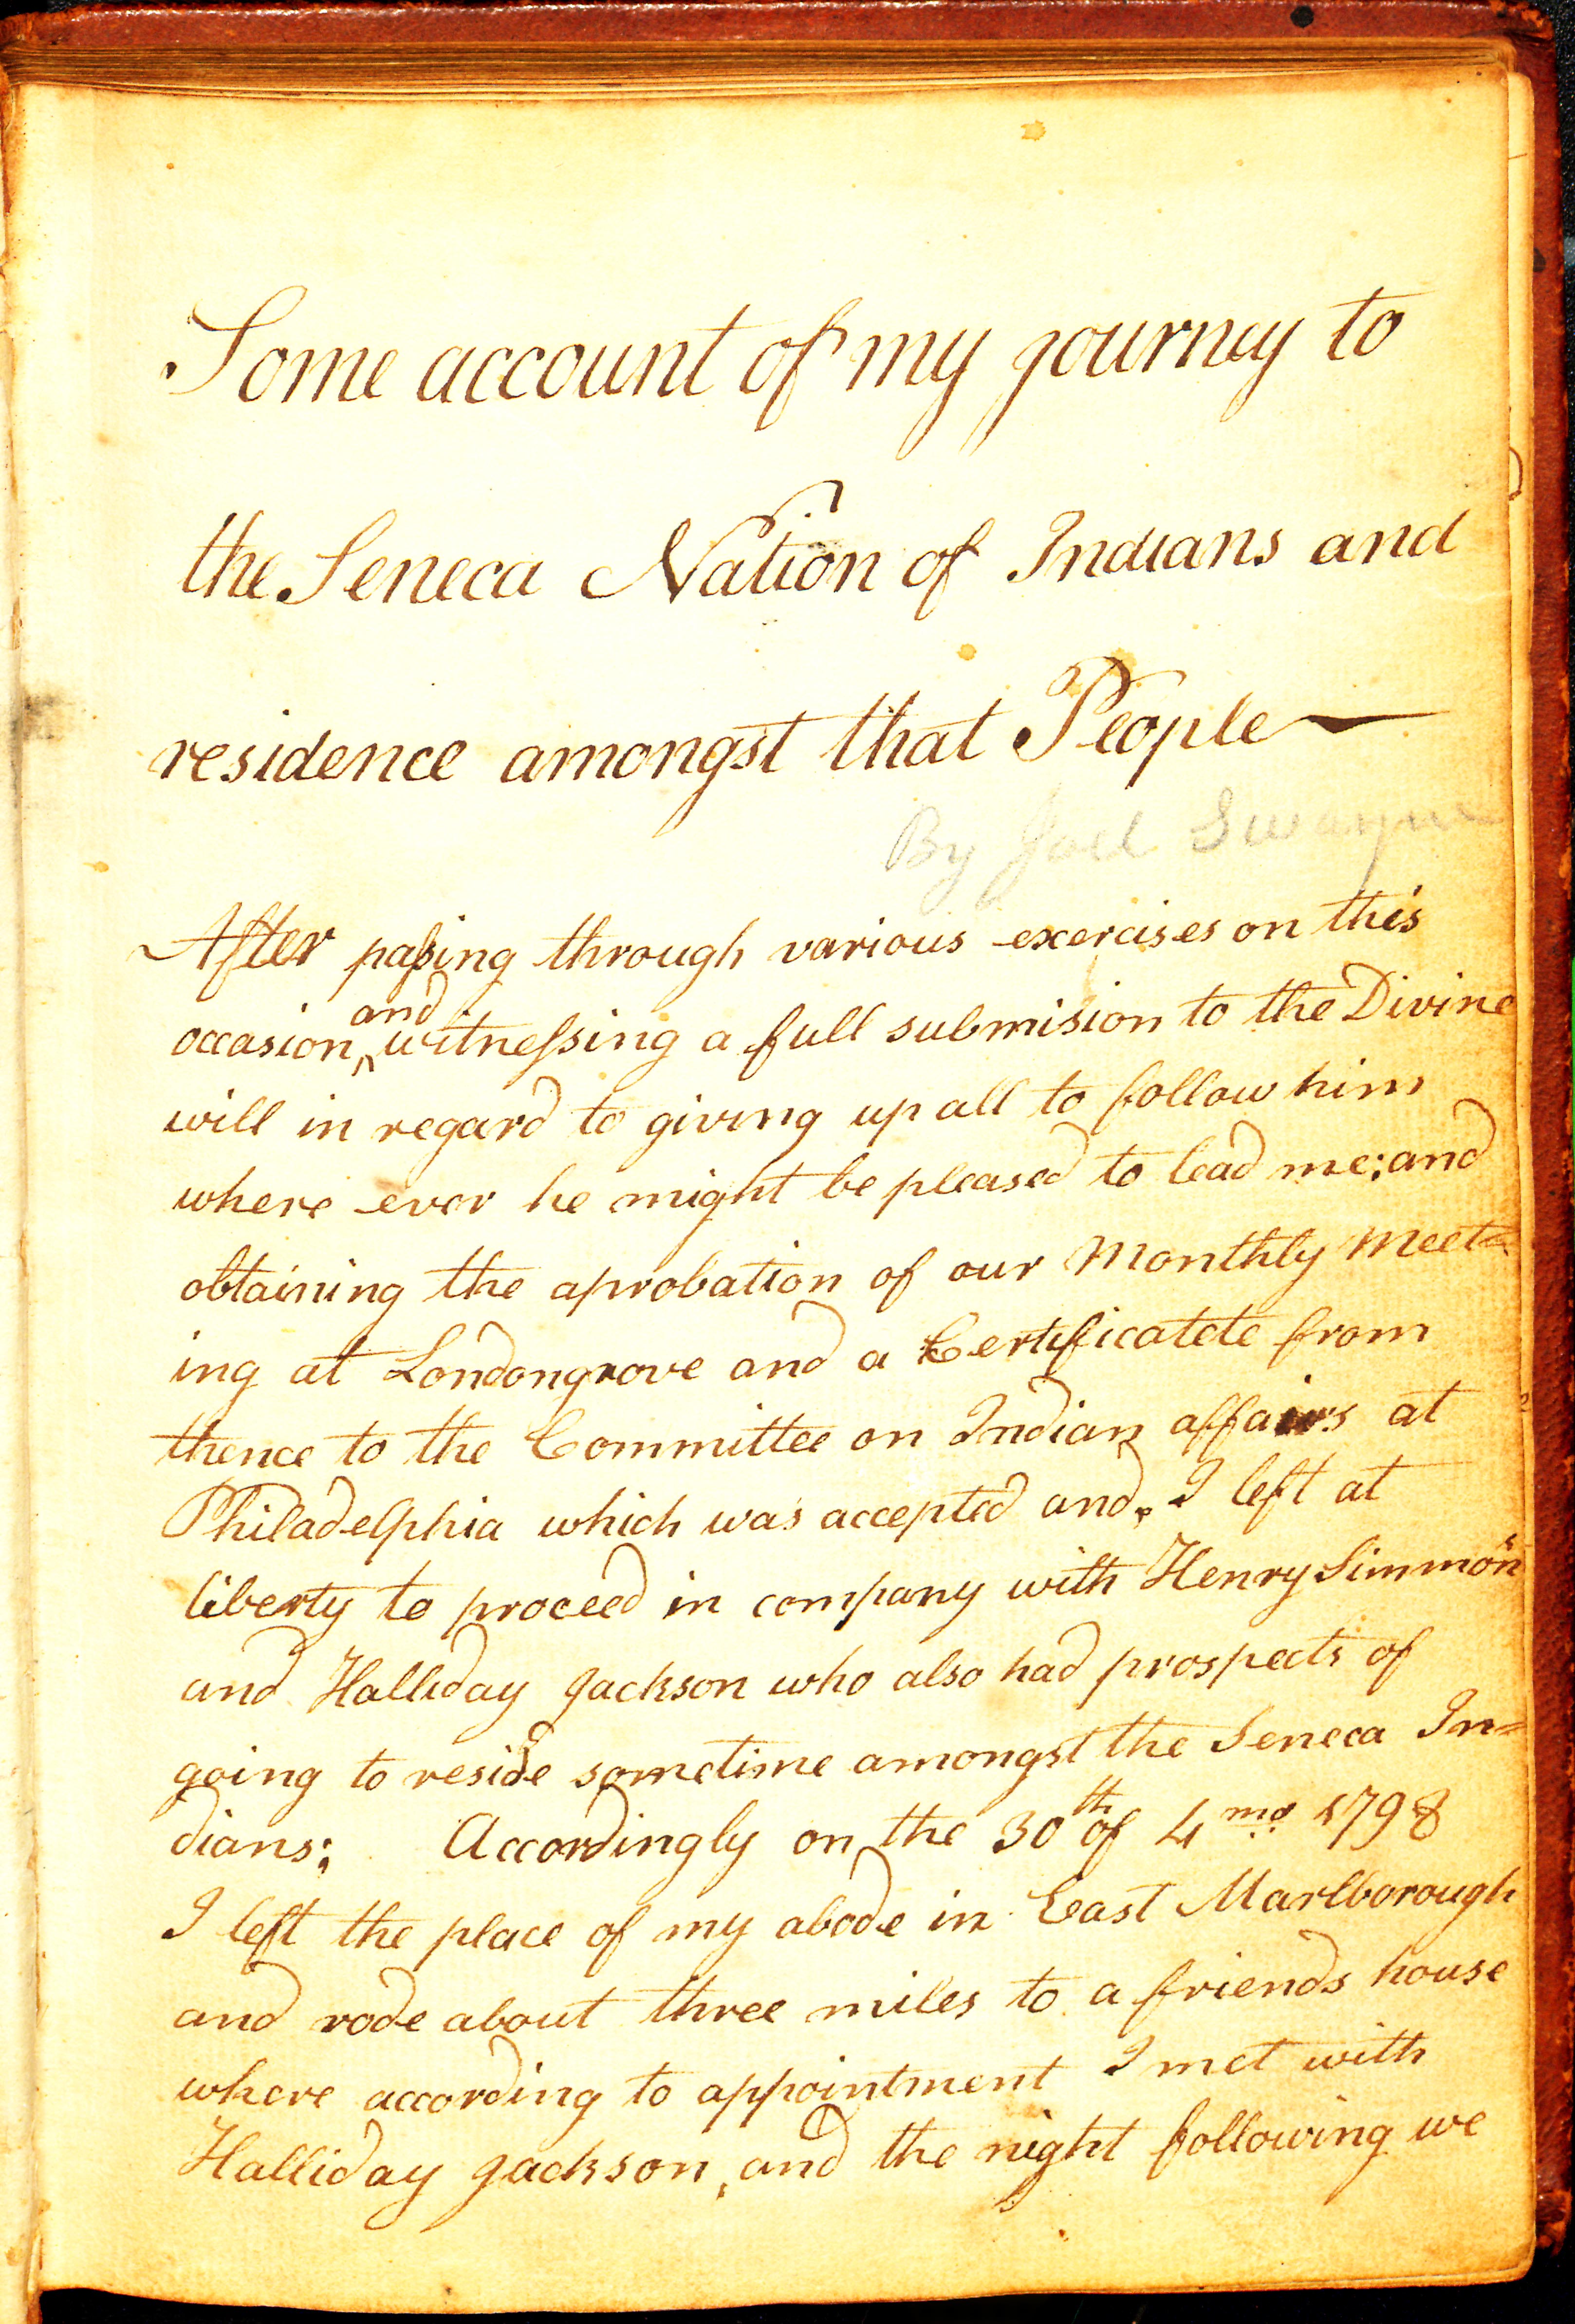 Some account of my journey to
the Seneca Nation of Indians and
residence amongst that People
By Joel Swayne
After paſsing through various exercises on this
occasion, and witneſsing a full submision to the Divine
will in regard to giving up all to follow him
where ever he might be pleased to lead me; and
obtaining the aprobation of our Monthly Meet=
ing at Londongrove and a Certificatete from
thence to the Committee on Indian affairs at
Philadelphia which was accepted and, I left at
liberty to proceed in company with Henry Simmons
and Halliday Jackson who also had prospects of
going to reside sometime amongst the Seneca In=
dians; Accordingly on the 30th of 4mo 1798
I left the place of my abode in East Marlborough
and rode about three miles to a friends house
where according to appointment I met with
Halliday Jackson, and the night following we